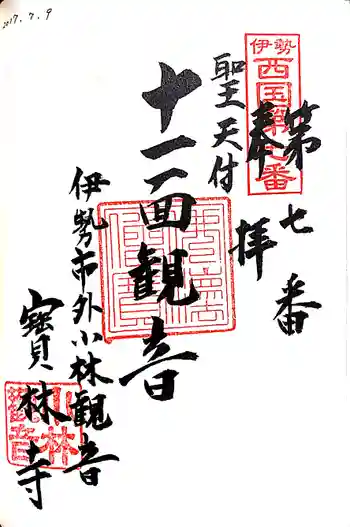 2017.7.9
伊勢
西国第七番
奉拝
第七番
聖天付
十一面観音
伊勢市外小林観音
寳林寺
小林
観音